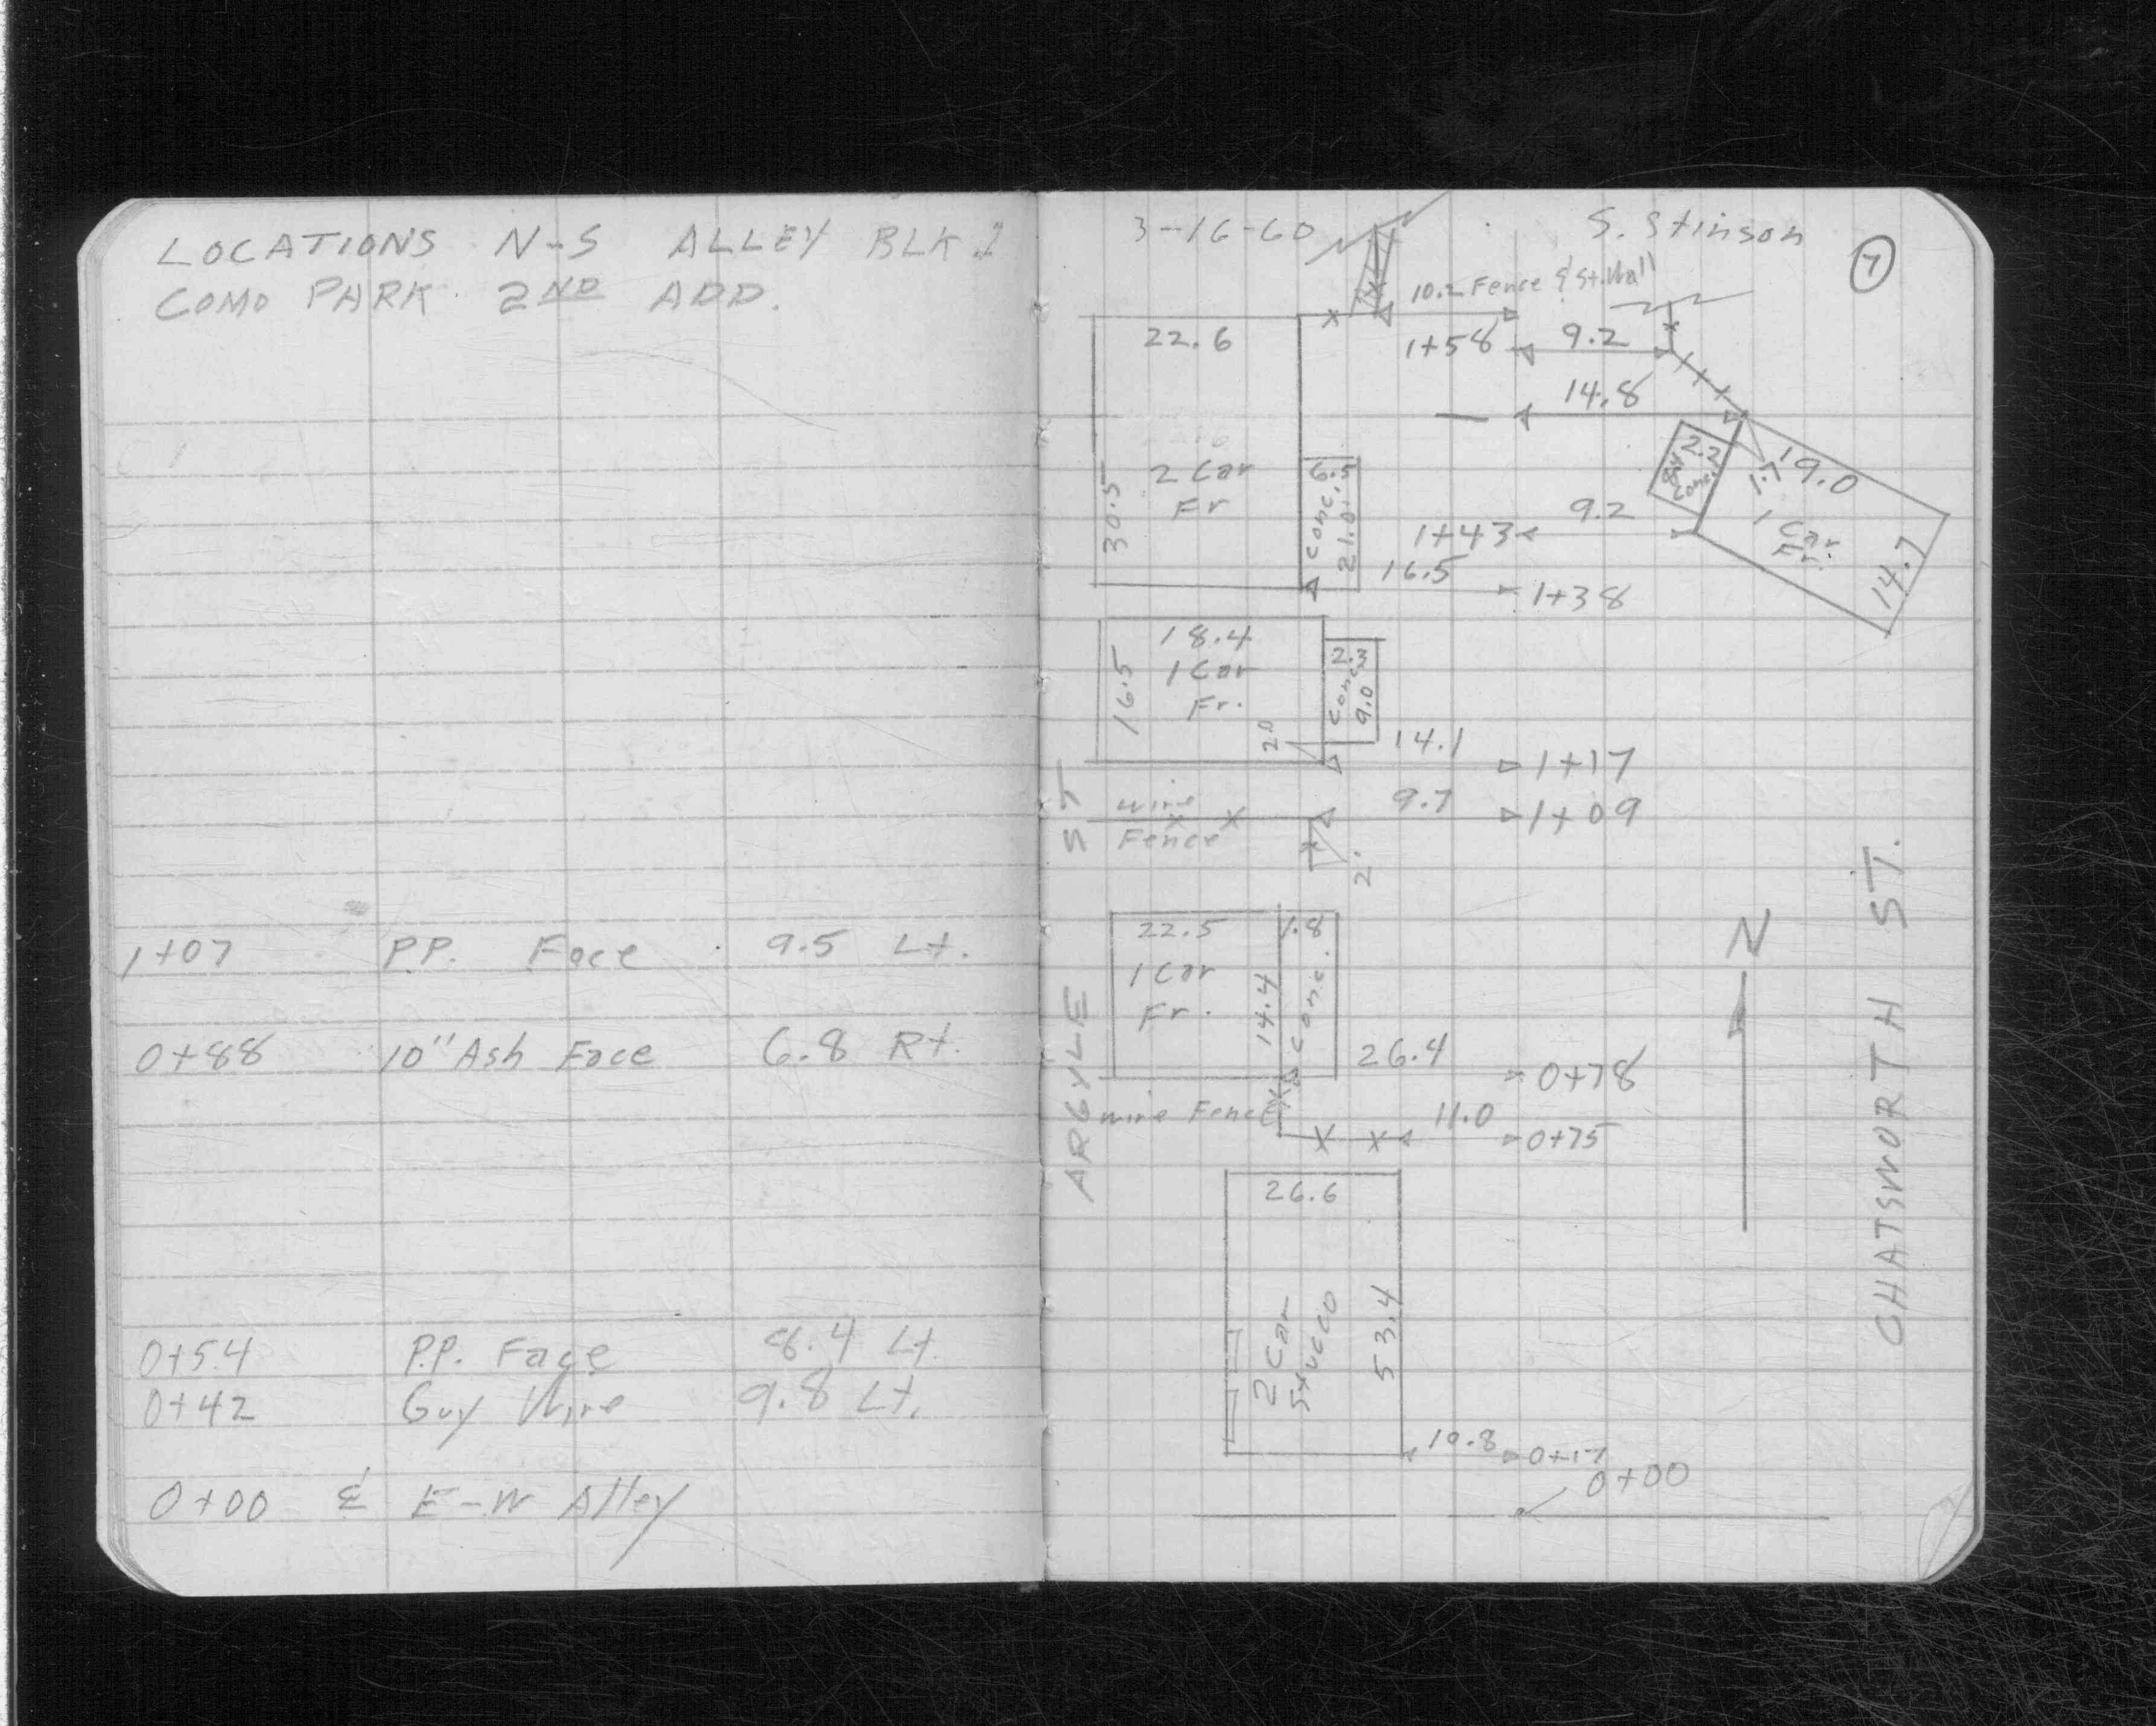 LOCATIONS N-S ALLEY BLK. 2
COMO PARK 2ND ADD.
1+07 P.P. Face 9.5 Lt.
0+88 10" Ash Face 6.8 Rt.
0+54 P.P. Face 8.4 Lt.
0+42 Guy Wire 9.8 Lt.
0+00 E-W Alley
3-16-60 S. Stinson
7
10.2 Fence & St. Wall
22.6
1+58 9.2
14.8
2 Car
Fr
30.5
Conc. 6.5
21.0
2.2
Conc.
1.7
19.0
1 Car
Fr.
14.7
1+43 9.2
16.5 1+38
18.4
1 Car
Fr.
16.5
2.3
Conc.
9.0
2.0
14.1 1+17
wire
Fence
9.7 1+09
2.
ARGYLE ST
22.5
1 Car
Fr.
14.4
1.8
Conc.
26.4 0+78
wire Fence
11.0 0+75
N
CHATSWORTH ST.
26.6
2 Car
Stucco
53.4
10.8 0+17
0+00